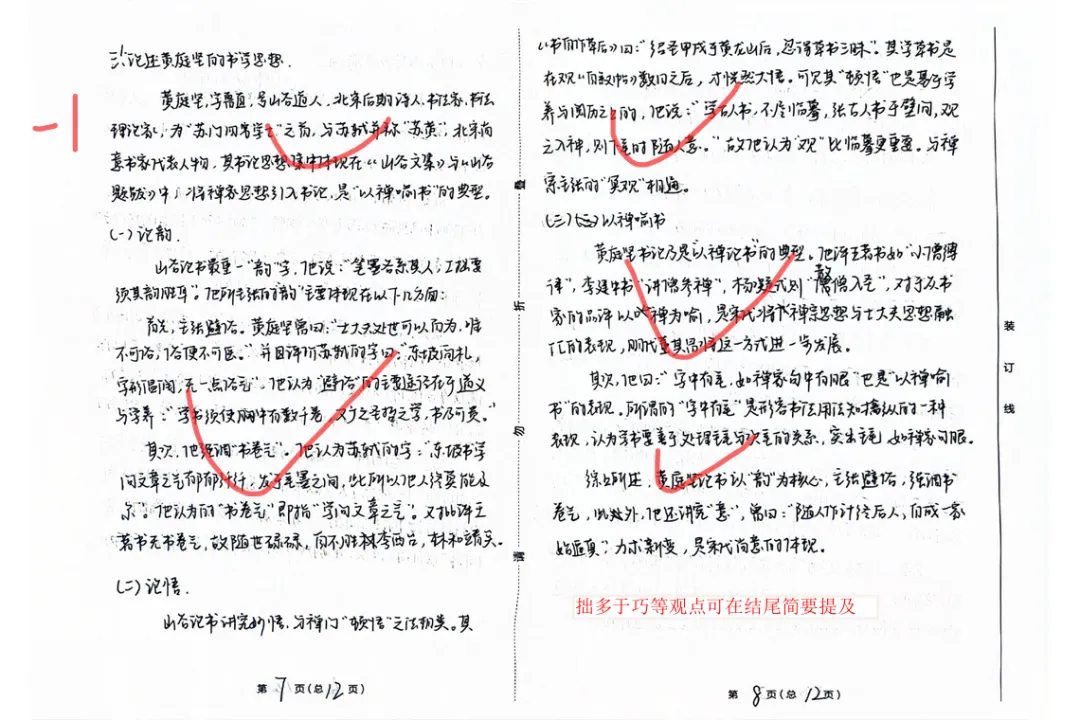 三、论述黄庭坚的书学思想.
黄庭坚,字鲁直,号山谷道人,北宋后期诗人、书法家、书法
理论家,为"苏门四学士"之首,与苏轼并称"苏黄",北宋尚
意书家代表人物,其书论思想集中体现在《山谷文集》与《山谷
题跋》中,将禅家思想引入书论,是"以禅喻书"的典型。
(一)论韵.
山谷论书最重一"韵"字,他说:"笔墨各系其人,工拙要
须其韵胜耳"。他所主张的"韵"主要体现在以下几方面:
首先,主张避俗。黄庭坚曾曰:"士大夫处世可以百为,唯
不可俗,俗便不可医。"并且评价苏轼的字曰:"东坡简札,
字形温润,无一点俗气"。他认为"避俗"的主要途径在于道义
与学养:"学书须使胸中有数千卷,又广之圣哲之学,书乃可贵。"
其次,他强调"书卷气"。他认为苏轼的字:"东坡书学
问文章之气郁郁芊芊,发于笔墨之间,此所以他人终莫能及
尔"。他认为的"书卷气"即指"学问文章之气"。又批评王
著书无书卷气,故随世碌碌,而不胜林李西台,林和靖矣。
(二)论悟.
山谷论书讲究妙悟,与禅门"顿悟"之法相类。其
曰:"绍圣甲戌于黄龙山后,忽得草书三昧"。其学草书是
在观《自叙帖》数日之后,才恍然大悟。可见其"顿悟"也是基于学
养与阅历之上的,他说:"学古人书,不尽临摹,张古人书于壁间,观
之入神,则下笔时随人意。"故他认为"观"比临摹更重要。与禅
宗主张的"冥观"相通。
(三)以禅喻书
黄庭坚书论乃是"以禅论书"的典型。他评王著书如"小僧缚
律",李建中书"讲僧参禅",杨凝式则"散僧入圣",对于及书
家的品评以禅为喻,是宋代将禅宗思想与士大夫思想融
汇的表现,明代董其昌将这一方式进一步发展。
其次,他曰:"字中有笔,如禅家句中有眼"也是"以禅喻
书"的表现。所谓的"字中有笔"是形容书法用法知擒纵的一种
表现,认为学书要善于处理主笔与次笔的关系,突出主笔,如禅家句眼。
综上所述,黄庭坚论书以"韵"为核心,主张避俗,强调书
卷气,此外,他还讲究"意",曾曰:"随人作计终后人,自成一家
始逼真",力求新变,是宋代尚意的体现。
拙多于巧等观点可在结尾简要提及
第7页(总12页)
第8页(总12页)
叠
折
勿
满
装
订
线
-1